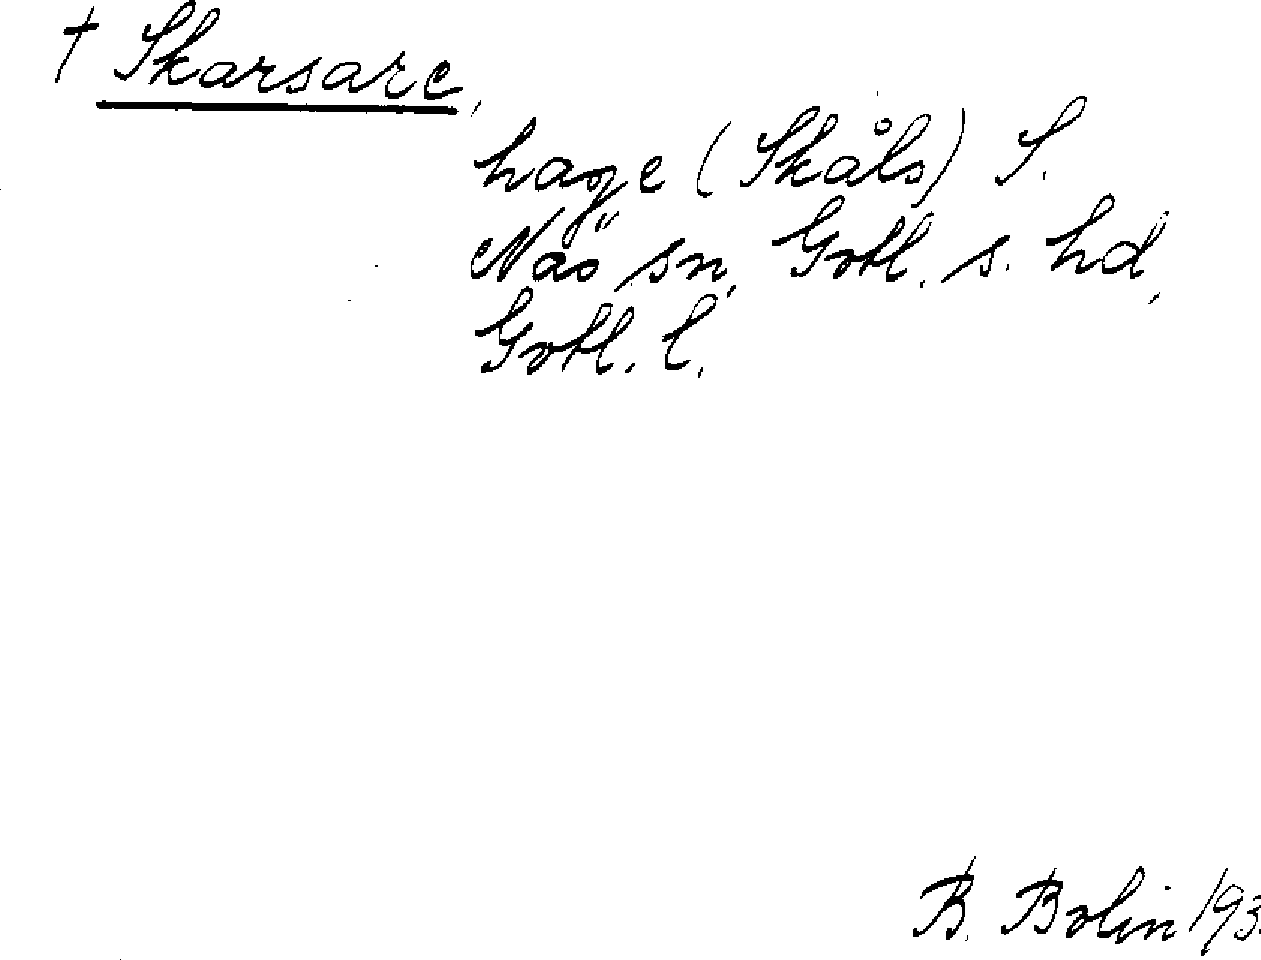 † Skarsare,
hage (Skåls) S.
Näs sn, Gotl. s. hd,
Gotl. l.
B. Bolin 193